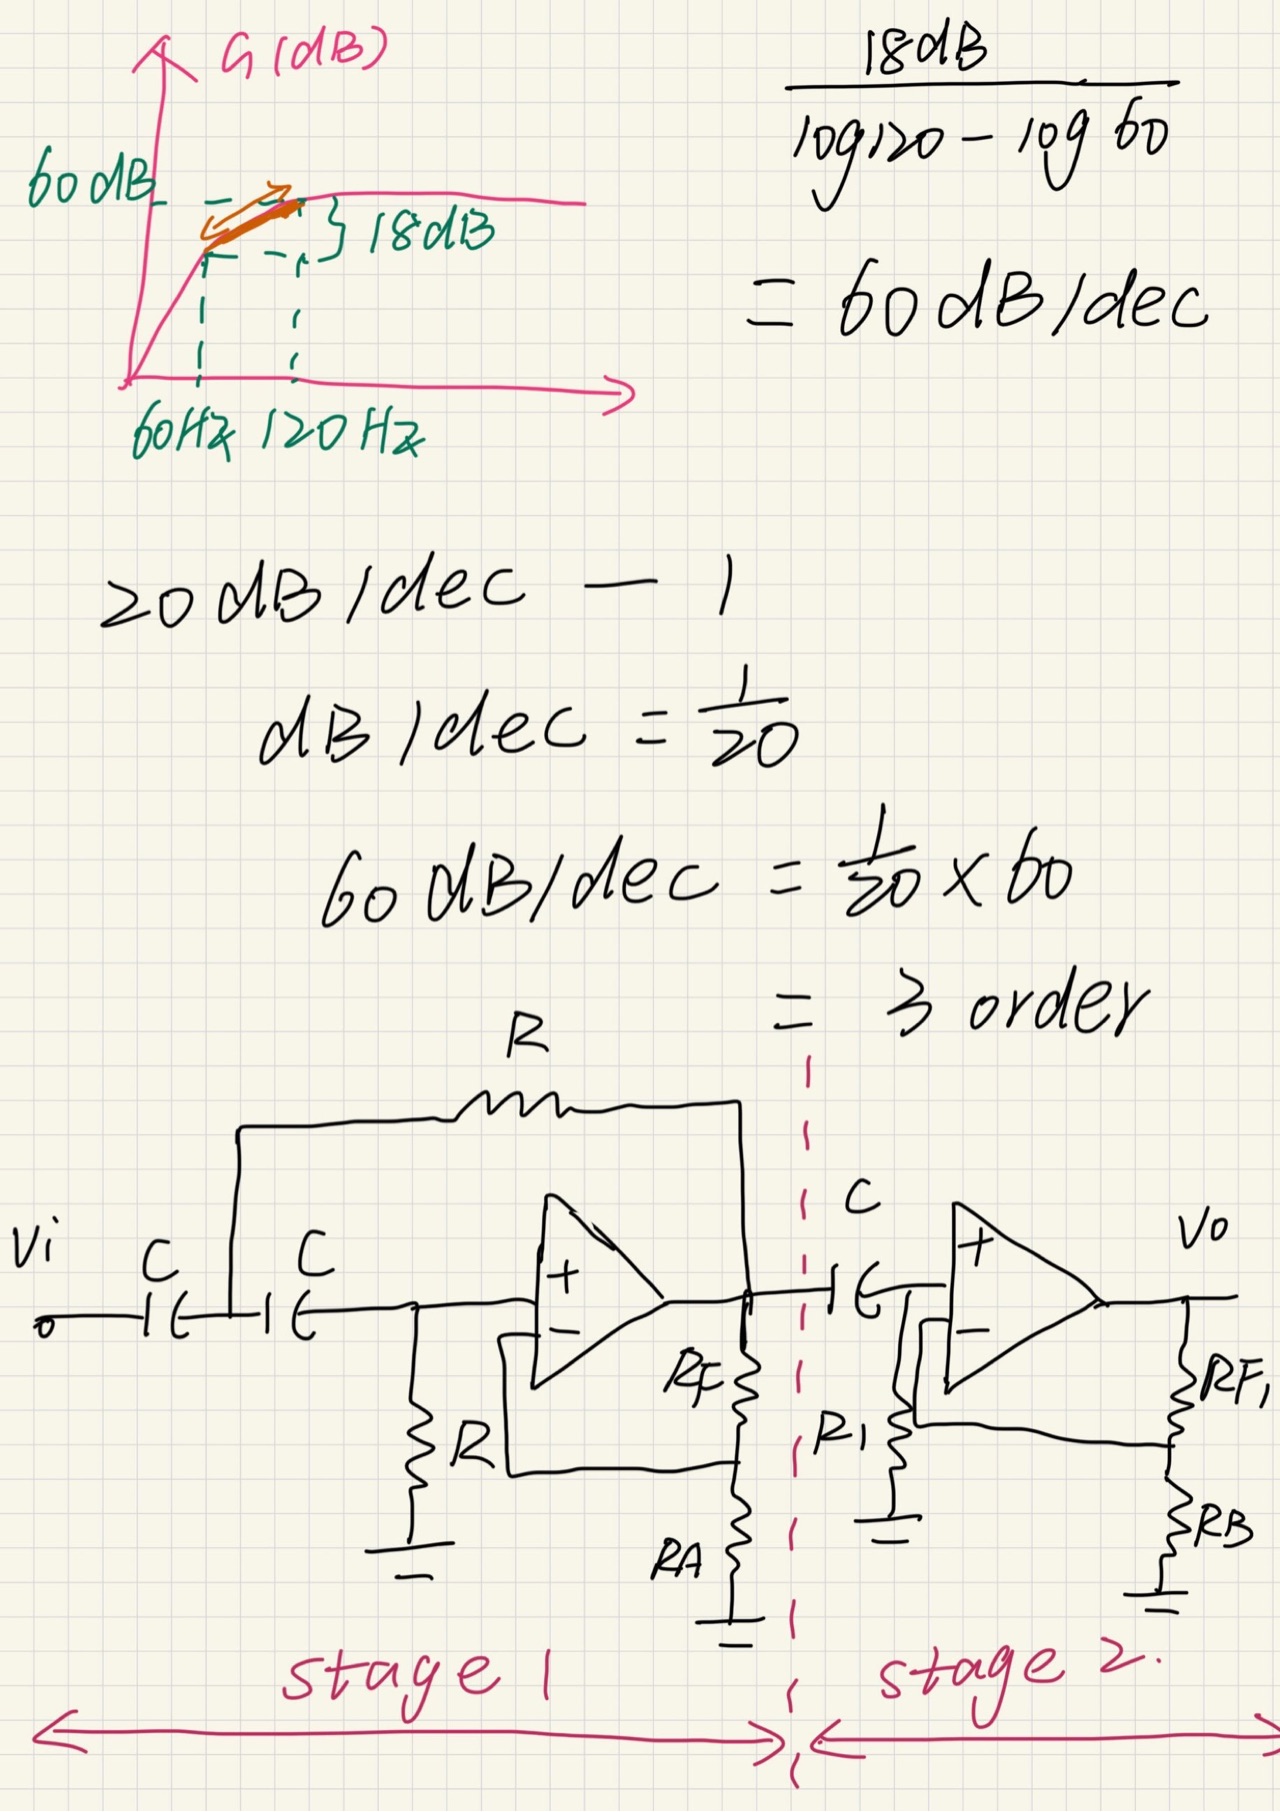 G(dB)
60dB
18dB
60Hz 120Hz
18dB
log120 - log 60
= 60dB/dec
20dB/dec — 1
dB/dec = 1/20
60dB/dec = 1/20 × 60
= 3 order
R
Vi
C
C
+
-
R
RF
RA
C
+
-
Vo
R1
RF1
RB
stage 1
stage 2.